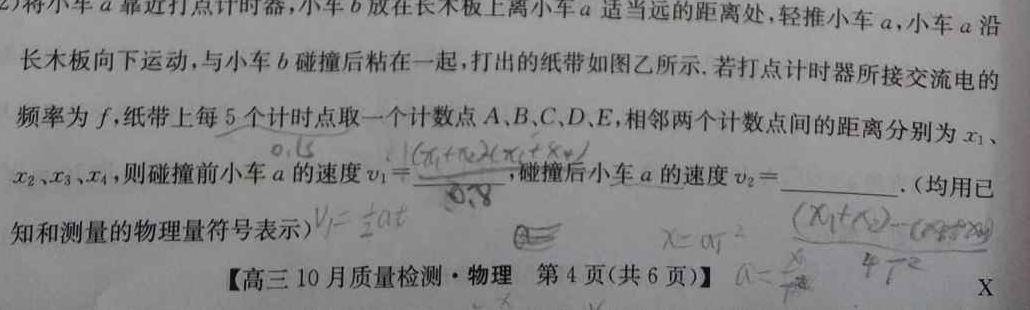 2)将小车a靠近打点计时器,小车b放在长木板上离小车a适当远的距离处,轻推小车a,小车a沿
长木板向下运动,与小车b碰撞后粘在一起,打出的纸带如图乙所示.若打点计时器所接交流电的
频率为f,纸带上每5个计时点取一个计数点A、B、C、D、E,相邻两个计数点间的距离分别为x₁、
0.1s (x₁+x₂)(x₁+x₄)
x₂、x₃、x₄,则碰撞前小车a的速度v₁=________,碰撞后小车a的速度v₂=________.(均用已
0.8
知和测量的物理量符号表示) V₁=½at x=aT² (x₁+x₂)-(x₃+x₄)
4T²
【高三10月质量检测·物理 第4页(共6页)】 a= X